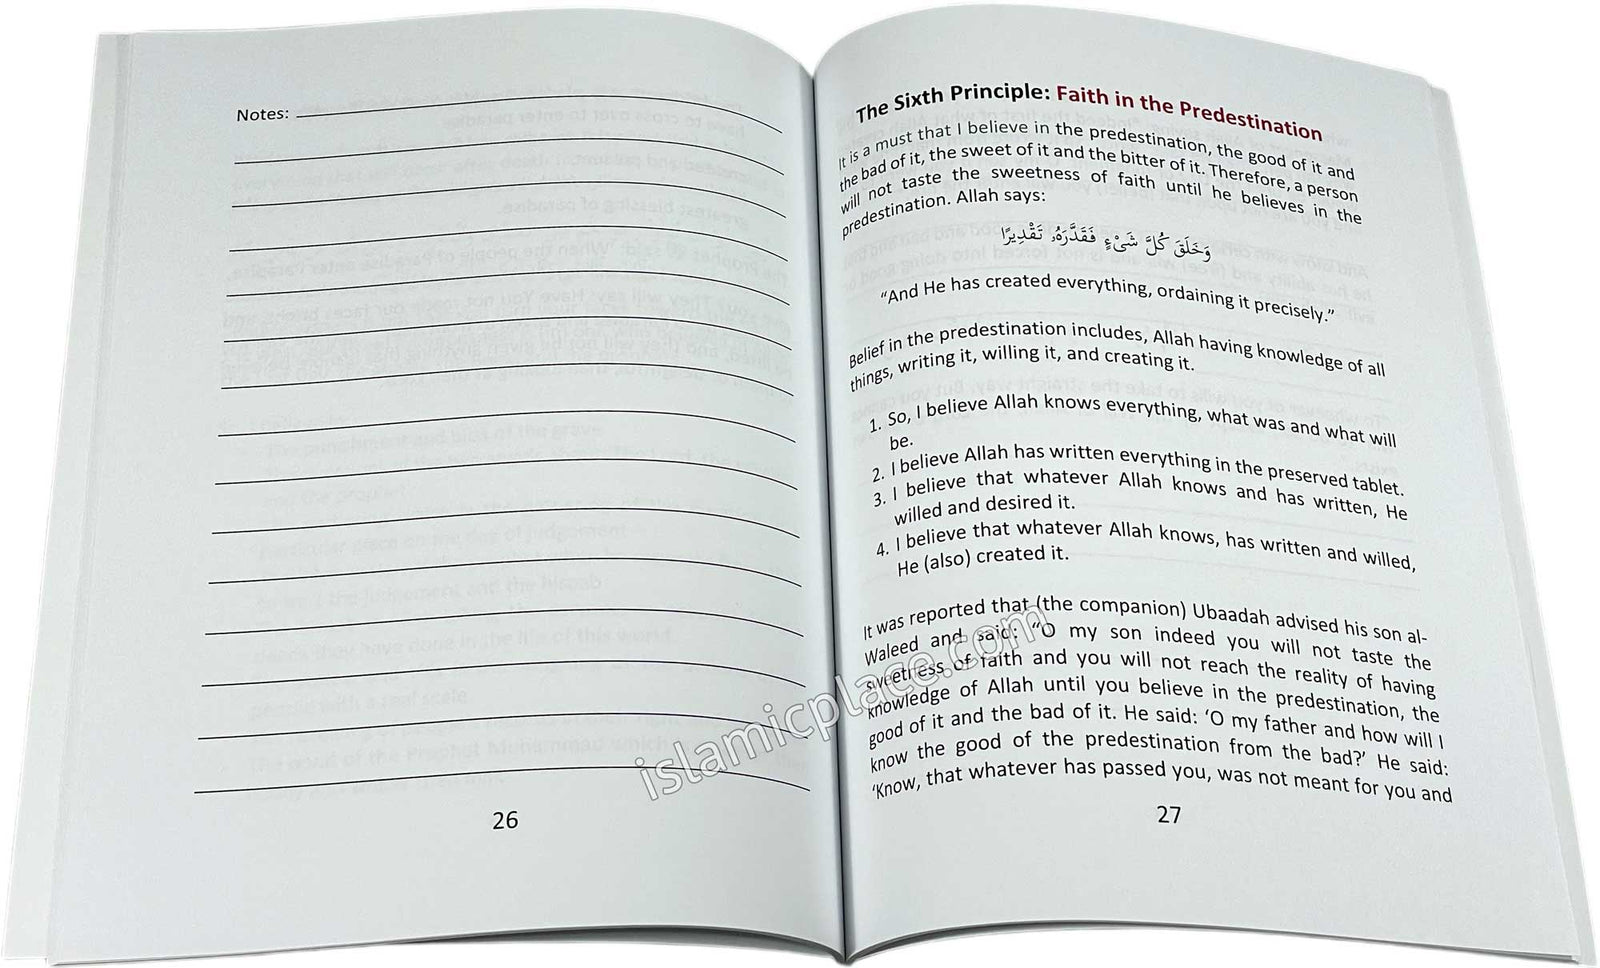 Notes:
26
The Sixth Principle: Faith in the Predestination
It is a must that I believe in the predestination, the good of it and
the bad of it, the sweet of it and the bitter of it. Therefore, a person
will not taste the sweetness of faith until he believes in the
predestination. Allah says:
وَخَلَقَ كُلَّ شَىْءٍ فَقَدَّرَهُۥ تَقْدِيرًا
“And He has created everything, ordaining it precisely.”
Belief in the predestination includes, Allah having knowledge of all
things, writing it, willing it, and creating it.
1. So, I believe Allah knows everything, what was and what will
be.
2. I believe Allah has written everything in the preserved tablet.
3. I believe that whatever Allah knows and has written, He
willed and desired it.
4. I believe that whatever Allah knows, has written and willed,
He (also) created it.
It was reported that (the companion) Ubaadah advised his son al-
Waleed and said: “O my son indeed you will not taste the
sweetness of faith and you will not reach the reality of having
knowledge of Allah until you believe in the predestination, the
good of it and the bad of it. He said: ‘O my father and how will I
know the good of the predestination from the bad?’ He said:
‘Know, that whatever has passed you, was not meant for you and
27
islamicplace.com